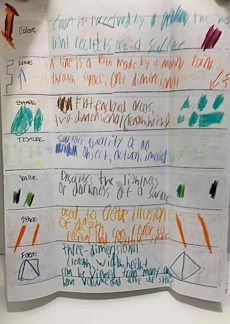 Color
Color is perceived by the way
light reflects off a surface
LINE
A line is a path made by a moving point
through space, one dimensional
SHAPE
Flat enclosed areas
two-dimensional
TEXTURE
surface quality of an
object, actual, implied
Value
Describes the lightness
or darkness of a surface
Space
used to create illusion
of depth
Form
three-dimensional
length width height
can be viewed from many